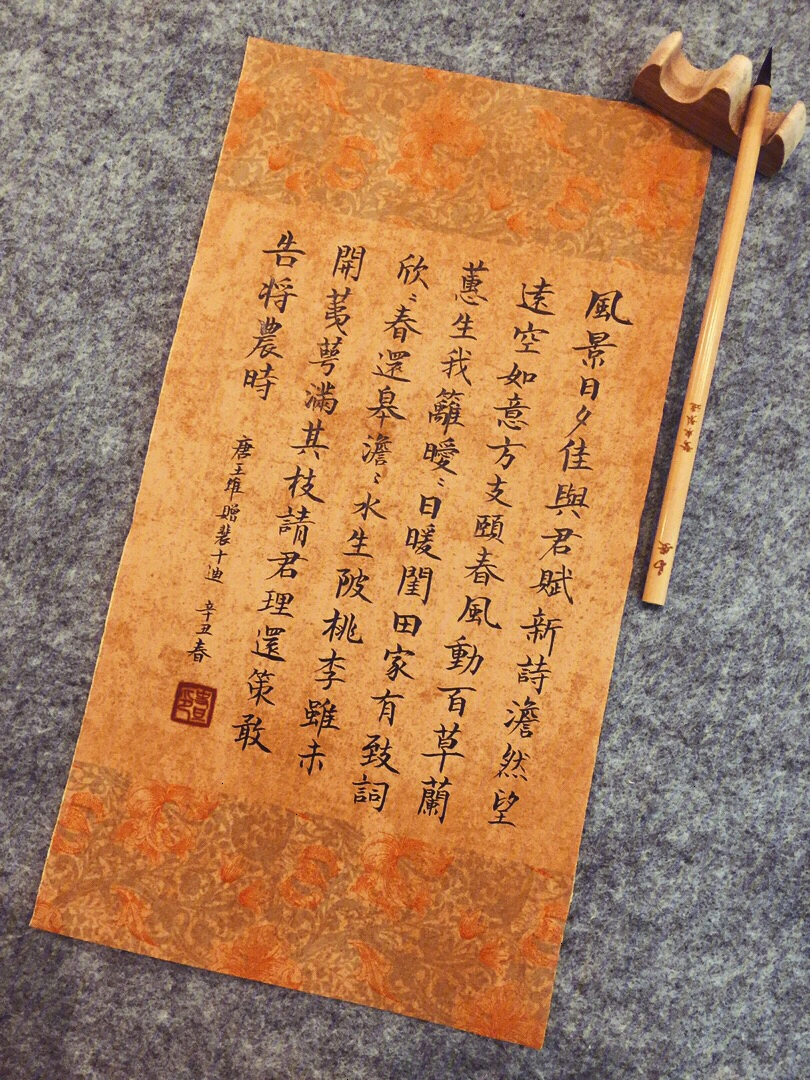 風景日夕佳與君賦新詩澹然望
遠空如意方支頤春風動百草蘭
蕙生我籬曖〻日暖閨田家有致詞
欣〻春還皋澹〻水生陂桃李雖未
開荑萼滿其枝請君理還策敢
告将農時
唐王維贈裴十迪 辛丑春